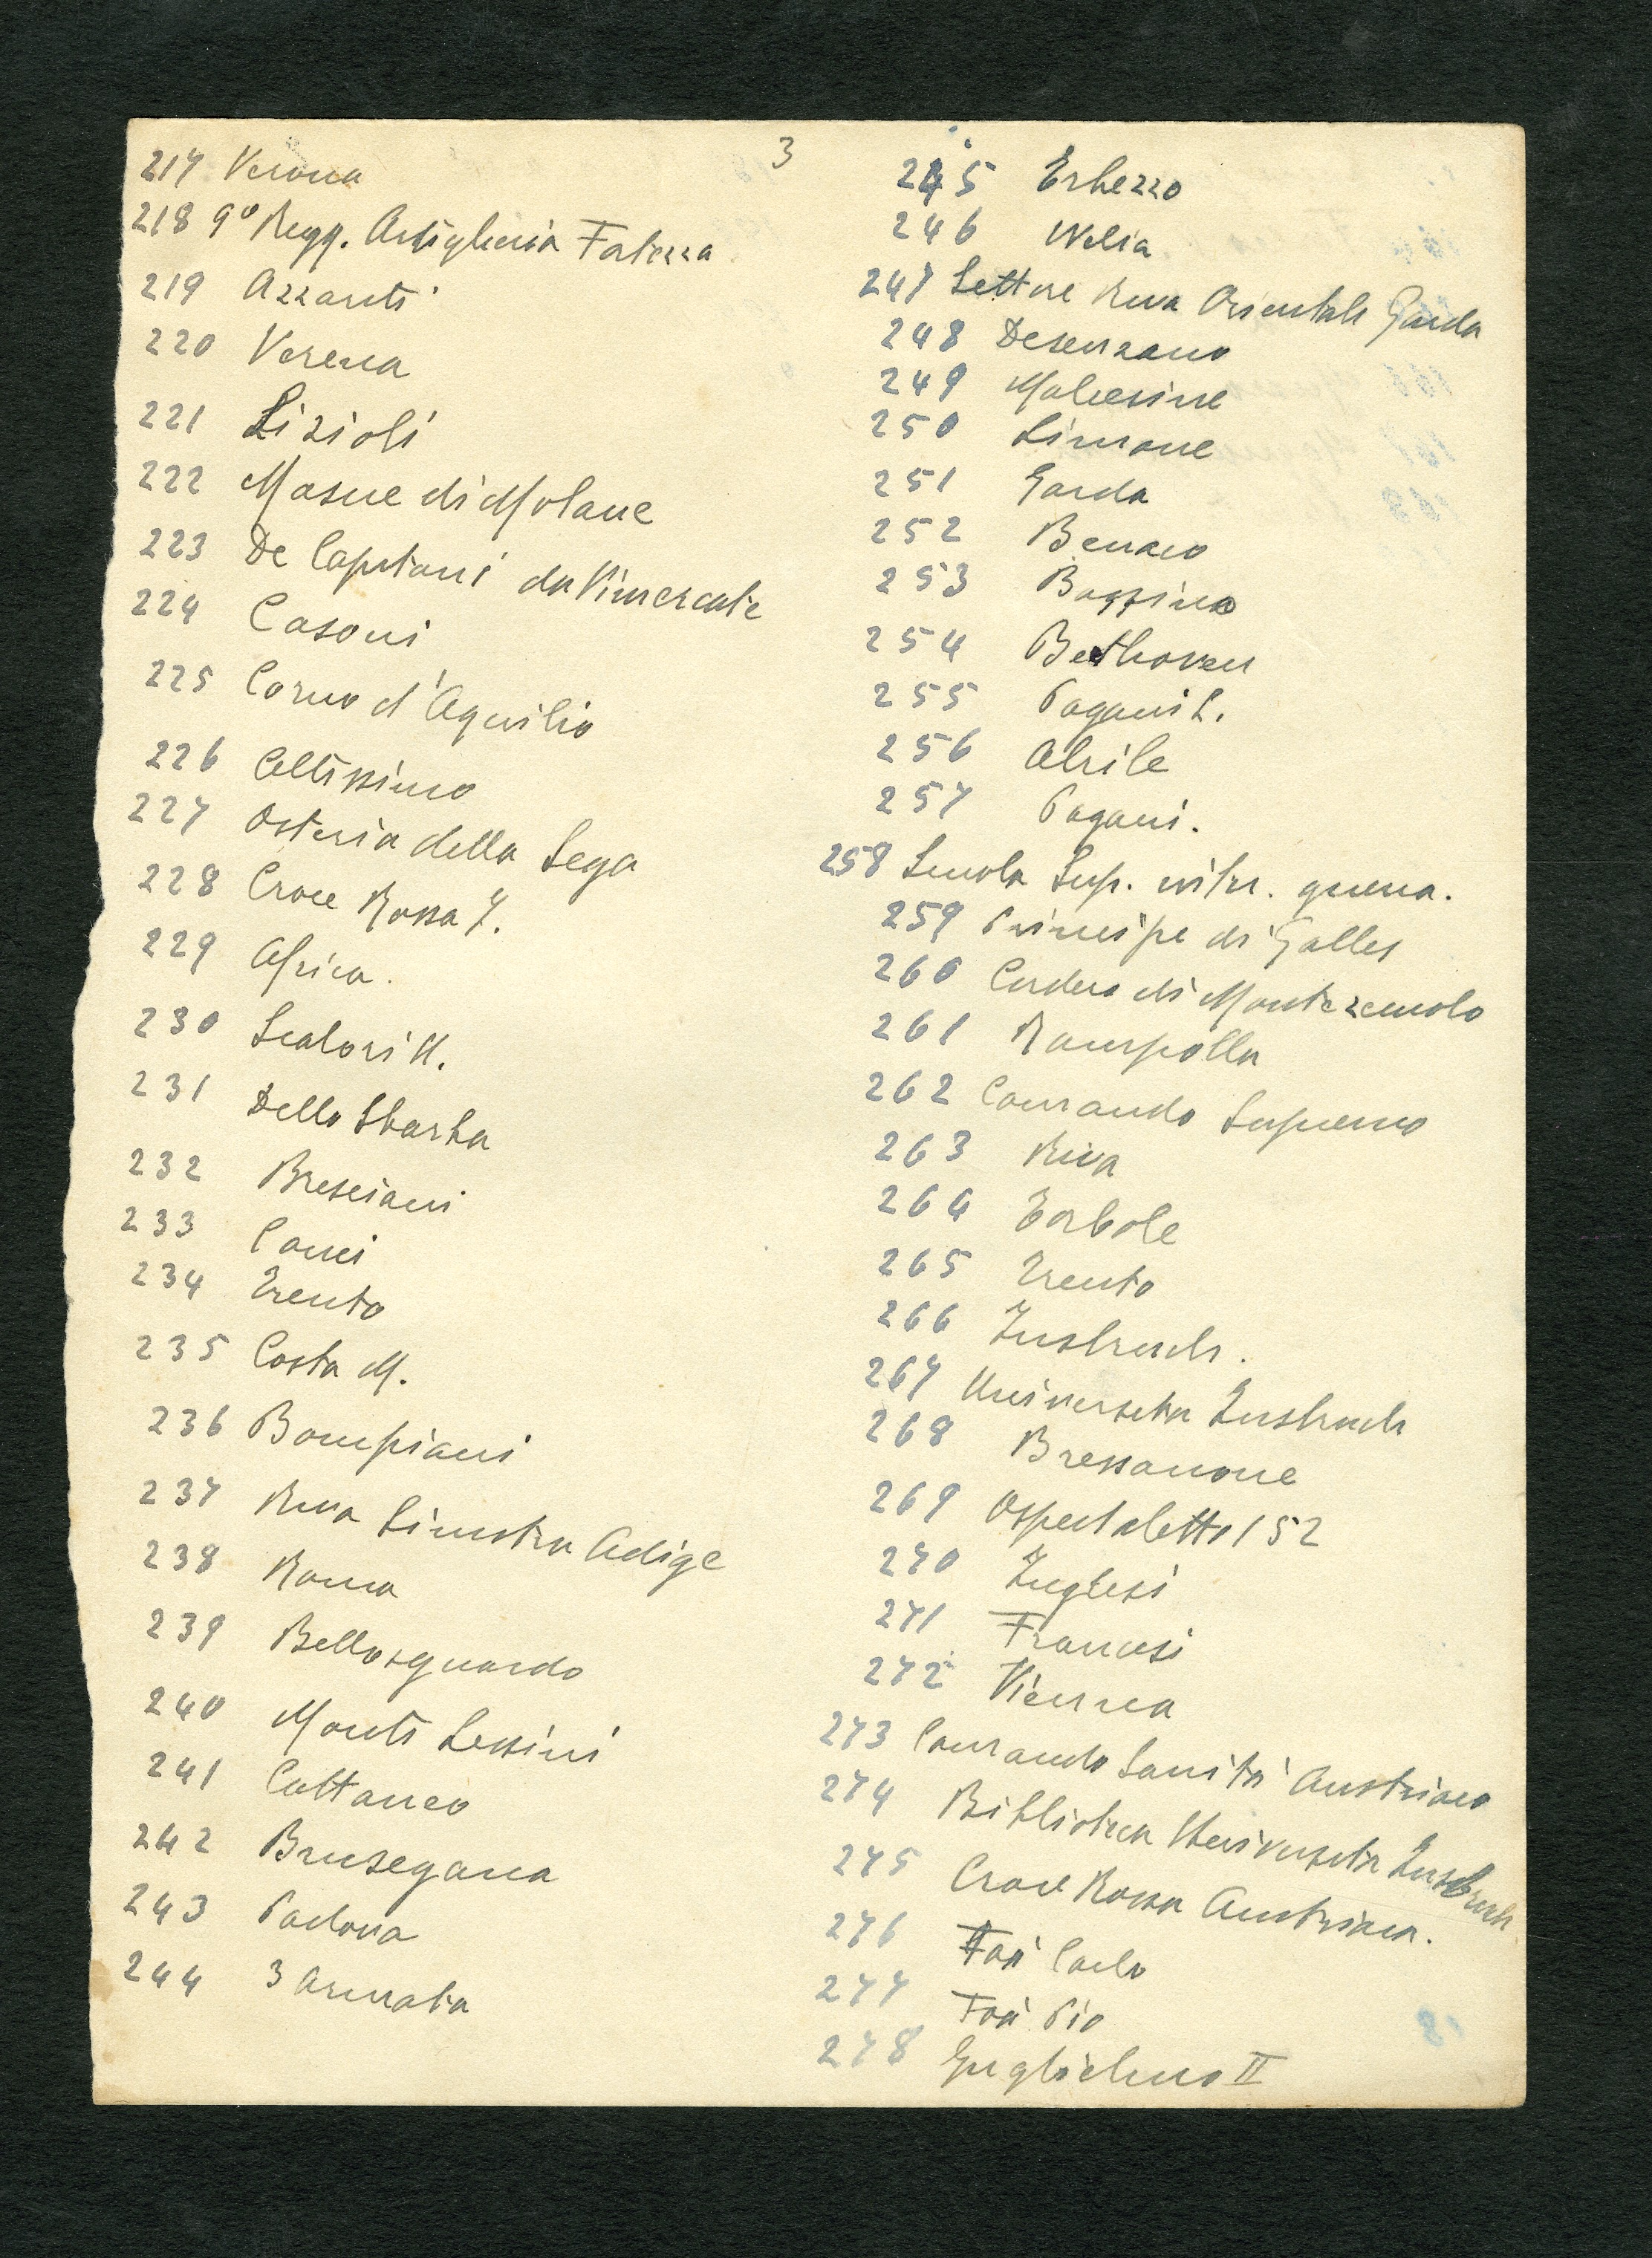 3
217 Verona
218 9º Regg. Artiglieria Fortezza
219 Azzariti
220 Verena
221 Lizioli
222 Masue di Molane
223 De Capitani da Vimercate
224 Casoni
225 Corno d'Aquilio
226 Altissimo
227 Osteria della Sega
228 Croce Rossa I.
229 Africa.
230 Scalori U.
231 Dello Sbarba
232 Bresciani
233
234 Trento
235 Costa M.
236 Bompiani
237 Riva Sinistra Adige
238 Roma
239 Bellosguardo
240 Monti Lessini
241 Cattaneo
242 Brusegana
243 Padova
244 3 Armata
245 Erbezzo
246 Velia
247 Settore Riva Orientale Garda
248 Desenzano
249 Malcesine
250 Limone
251 Garda
252 Benaco
253
254 Bethoven
255 Pagani L.
256 Abrile
257 Pagani.
258 Scuola Sup. guerra.
259 Principe di Galles
260 Cordero di Montezemolo
261 Rampolla
262 Comando Supremo
263 Riva
264 Torbole
265 Trento
266 Insbruch.
267 Universeta Insbruch
268 Bressanone
269 Ospedaletto 152
270 Inglesi
271 Francesi
272 Vienna
273 Comando Sanità Austriaco
274 Biblioteca Universeta Insbruch
275 Croce Rossa Austriaca.
276 Foà Carlo
277 Foà Pio
278 Guglielmo II